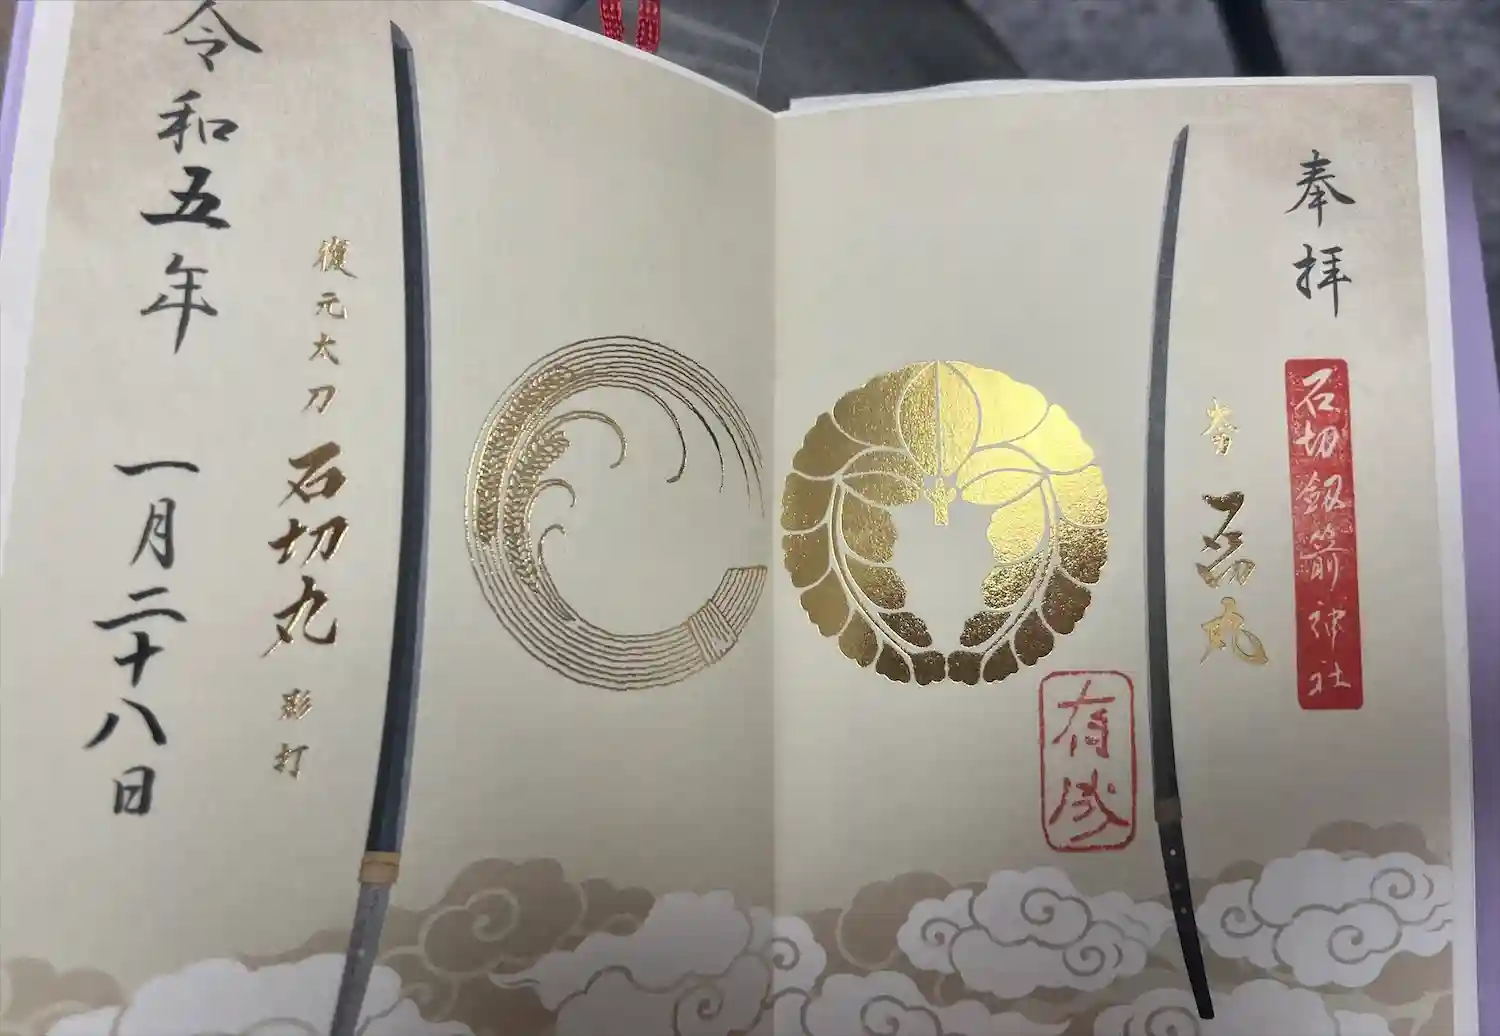 奉拝
石切劔箭神社
石切丸
有成
復元太刀 石切丸 影打
令和五年 一月二十八日